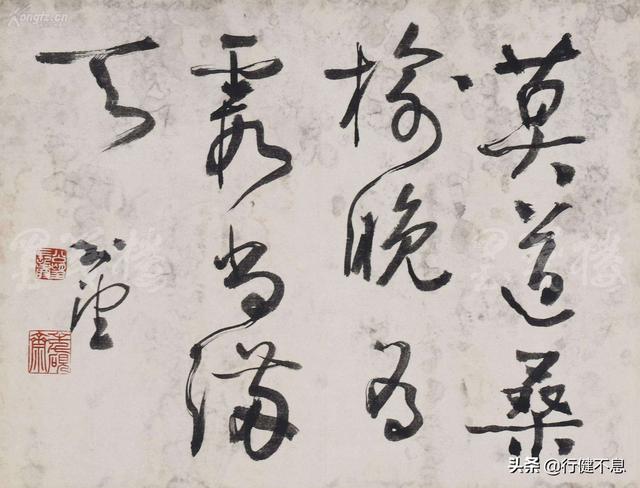 莫道桑
榆晚为
霞尚满
天
Kongfz.cn
头条 @行健不息